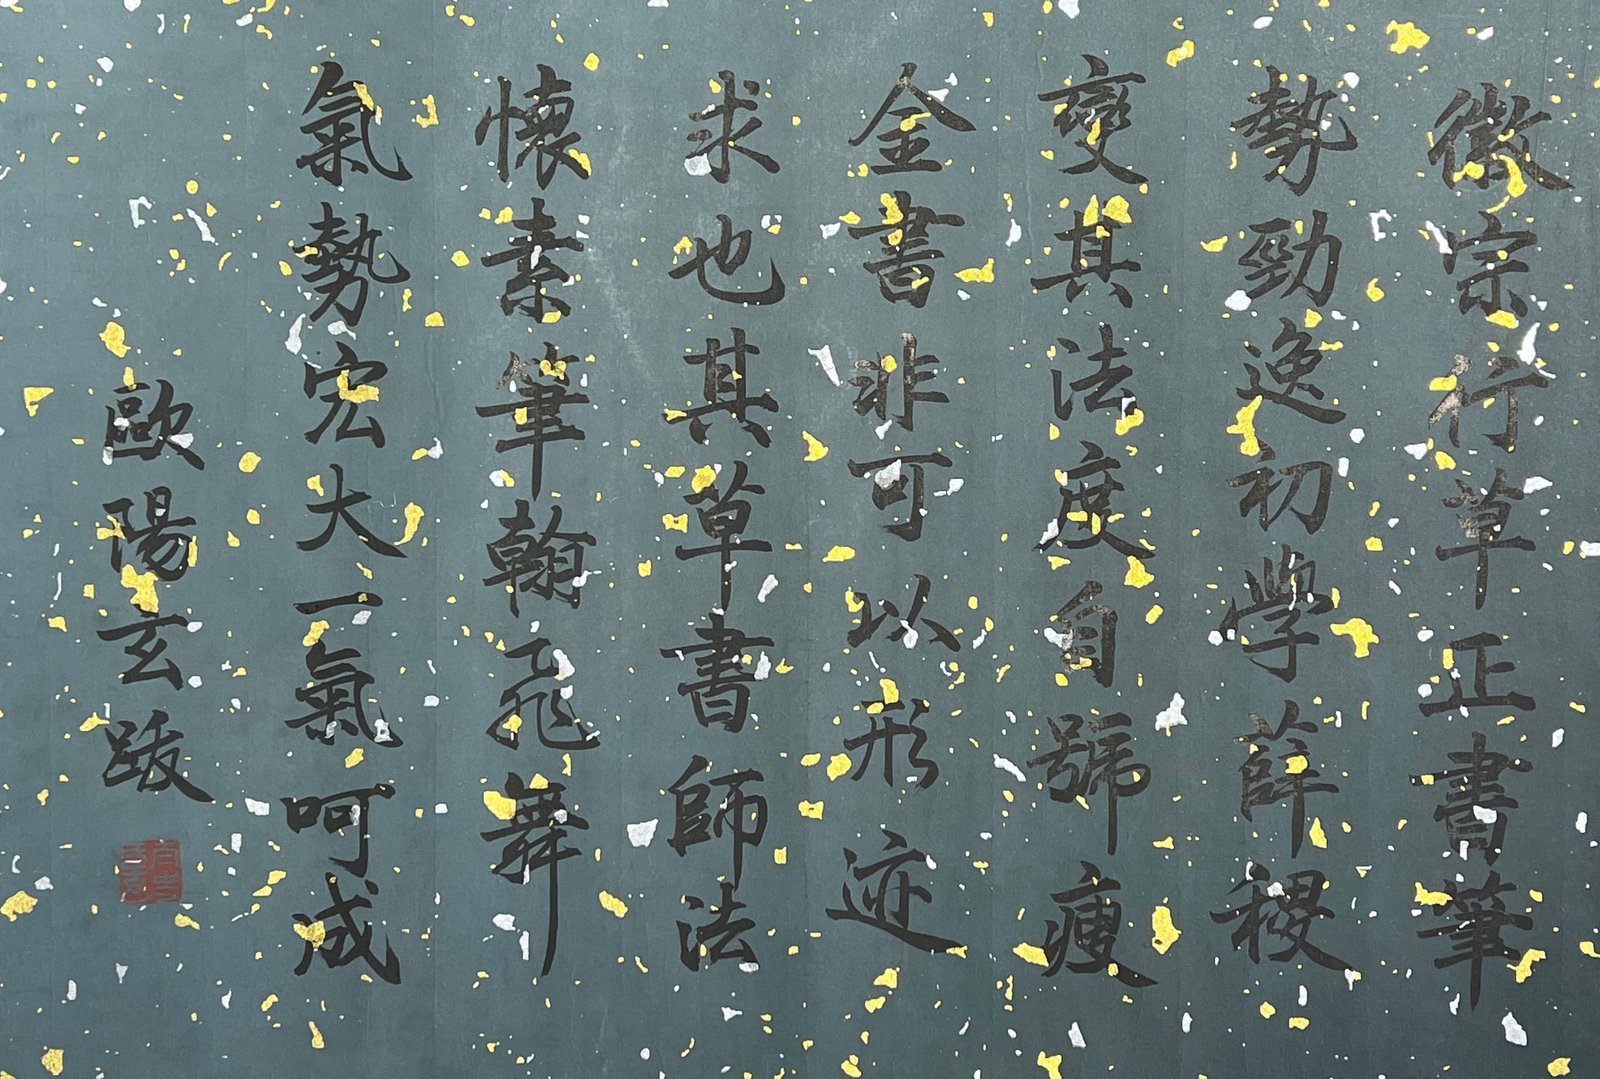 徽宗行草正書筆
勢勁逸初學薛稷
變其法度自號瘦
金書非可以形迹
求也其草書師法
懷素筆翰飛舞
氣勢宏大一氣呵成
歐陽玄跋